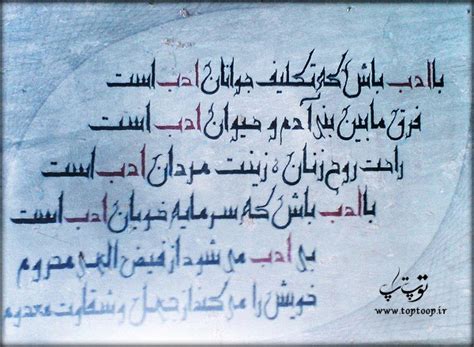 باادب باش که تکلیف جوانان ادب است
فرق مابین بنی آدم و حیوان ادب است
راحت روح زنان ه زینت مردان ادب است
باادب باش که سرمایه خوبان ادب است
بی ادب می شود از فیض الهی محروم
خویش را می کند از جهل و شقاوت معدوم
توپ تاپ
www.toptoop.ir